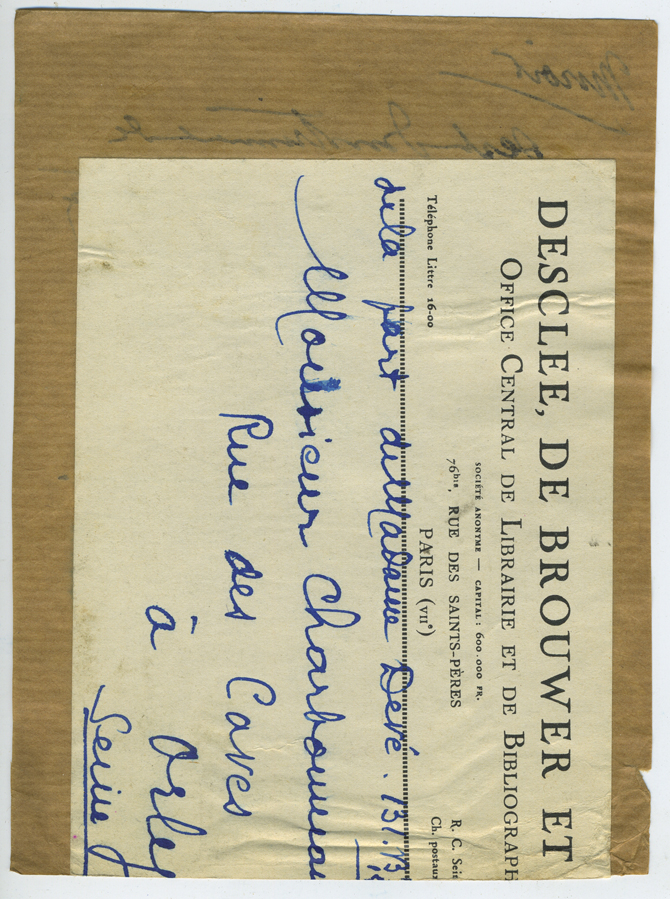 DESCLEE, DE BROUWER ET
OFFICE CENTRAL DE LIBRAIRIE ET DE BIBLIOGRAPH
SOCIÉTÉ ANONYME — CAPITAL : 600.000 FR.
76bis, RUE DES SAINTS-PÈRES
R. C. Sei
Téléphone Littre 16-00
PARIS (VIIe)
Ch. postaux
de la part de Madame Devé. 131.
Monsieur Charbonneau
Rue des Caves
à Orly
Seine